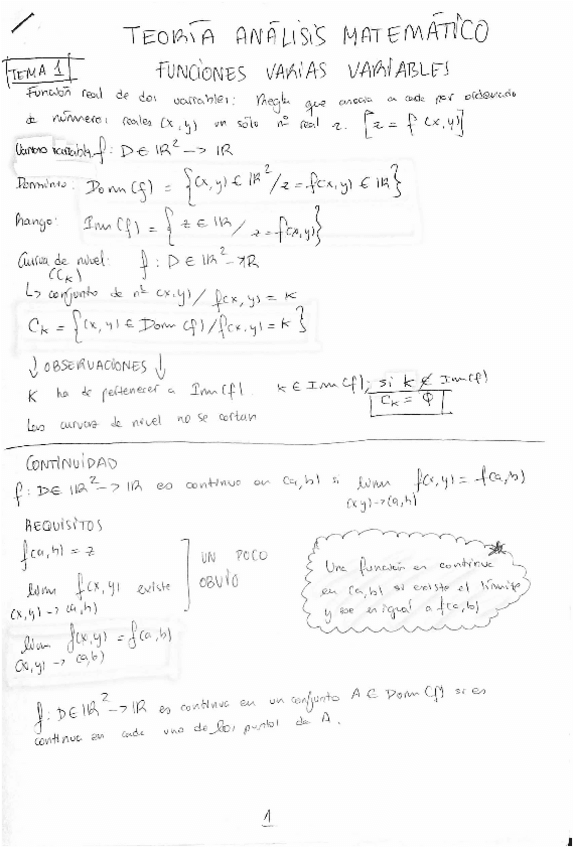 TEORÍA ANÁLISIS MATEMÁTICO
TEMA 1 FUNCIONES VARIAS VARIABLES
Función real de dos variables: Regla que asocia a cada par ordenado
de números reales (x,y) un sólo nº real z. [z = f(x,y)]
variable f: D ∈ IR² -> IR
Dominio: Dom(f) = {(x,y) ∈ IR² / z = f(x,y) ∈ IR}
Rango: Im(f) = {z ∈ IR / z = f(x,y)}
Curva de nivel: f: D ∈ IR² -> IR
(Ck)
↳ conjunto de nº (x,y) / f(x,y) = k
Ck = {(x,y) ∈ Dom(f) / f(x,y) = k}
↓ OBSERVACIONES ↓
K ha de pertenecer a Im(f). k ∈ Im(f); si k ∉ Im(f)
Ck = Φ
Las curvas de nivel no se cortan
CONTINUIDAD
f: D ∈ IR² -> IR es continua en (a,b) si lim f(x,y) = f(a,b)
(x,y) -> (a,b)
REQUISITOS
f(a,b) = z
lim f(x,y) existe
(x,y) -> (a,b)
UN POCO
OBVIO
lim f(x,y) = f(a,b)
(x,y) -> (a,b)
Una función es continua
en (a,b) si existe el límite
y ese es igual a f(a,b)
f: D ∈ IR² -> IR es continua en un conjunto A ∈ Dom(f) si es
continua en cada uno de los puntos de A.
1